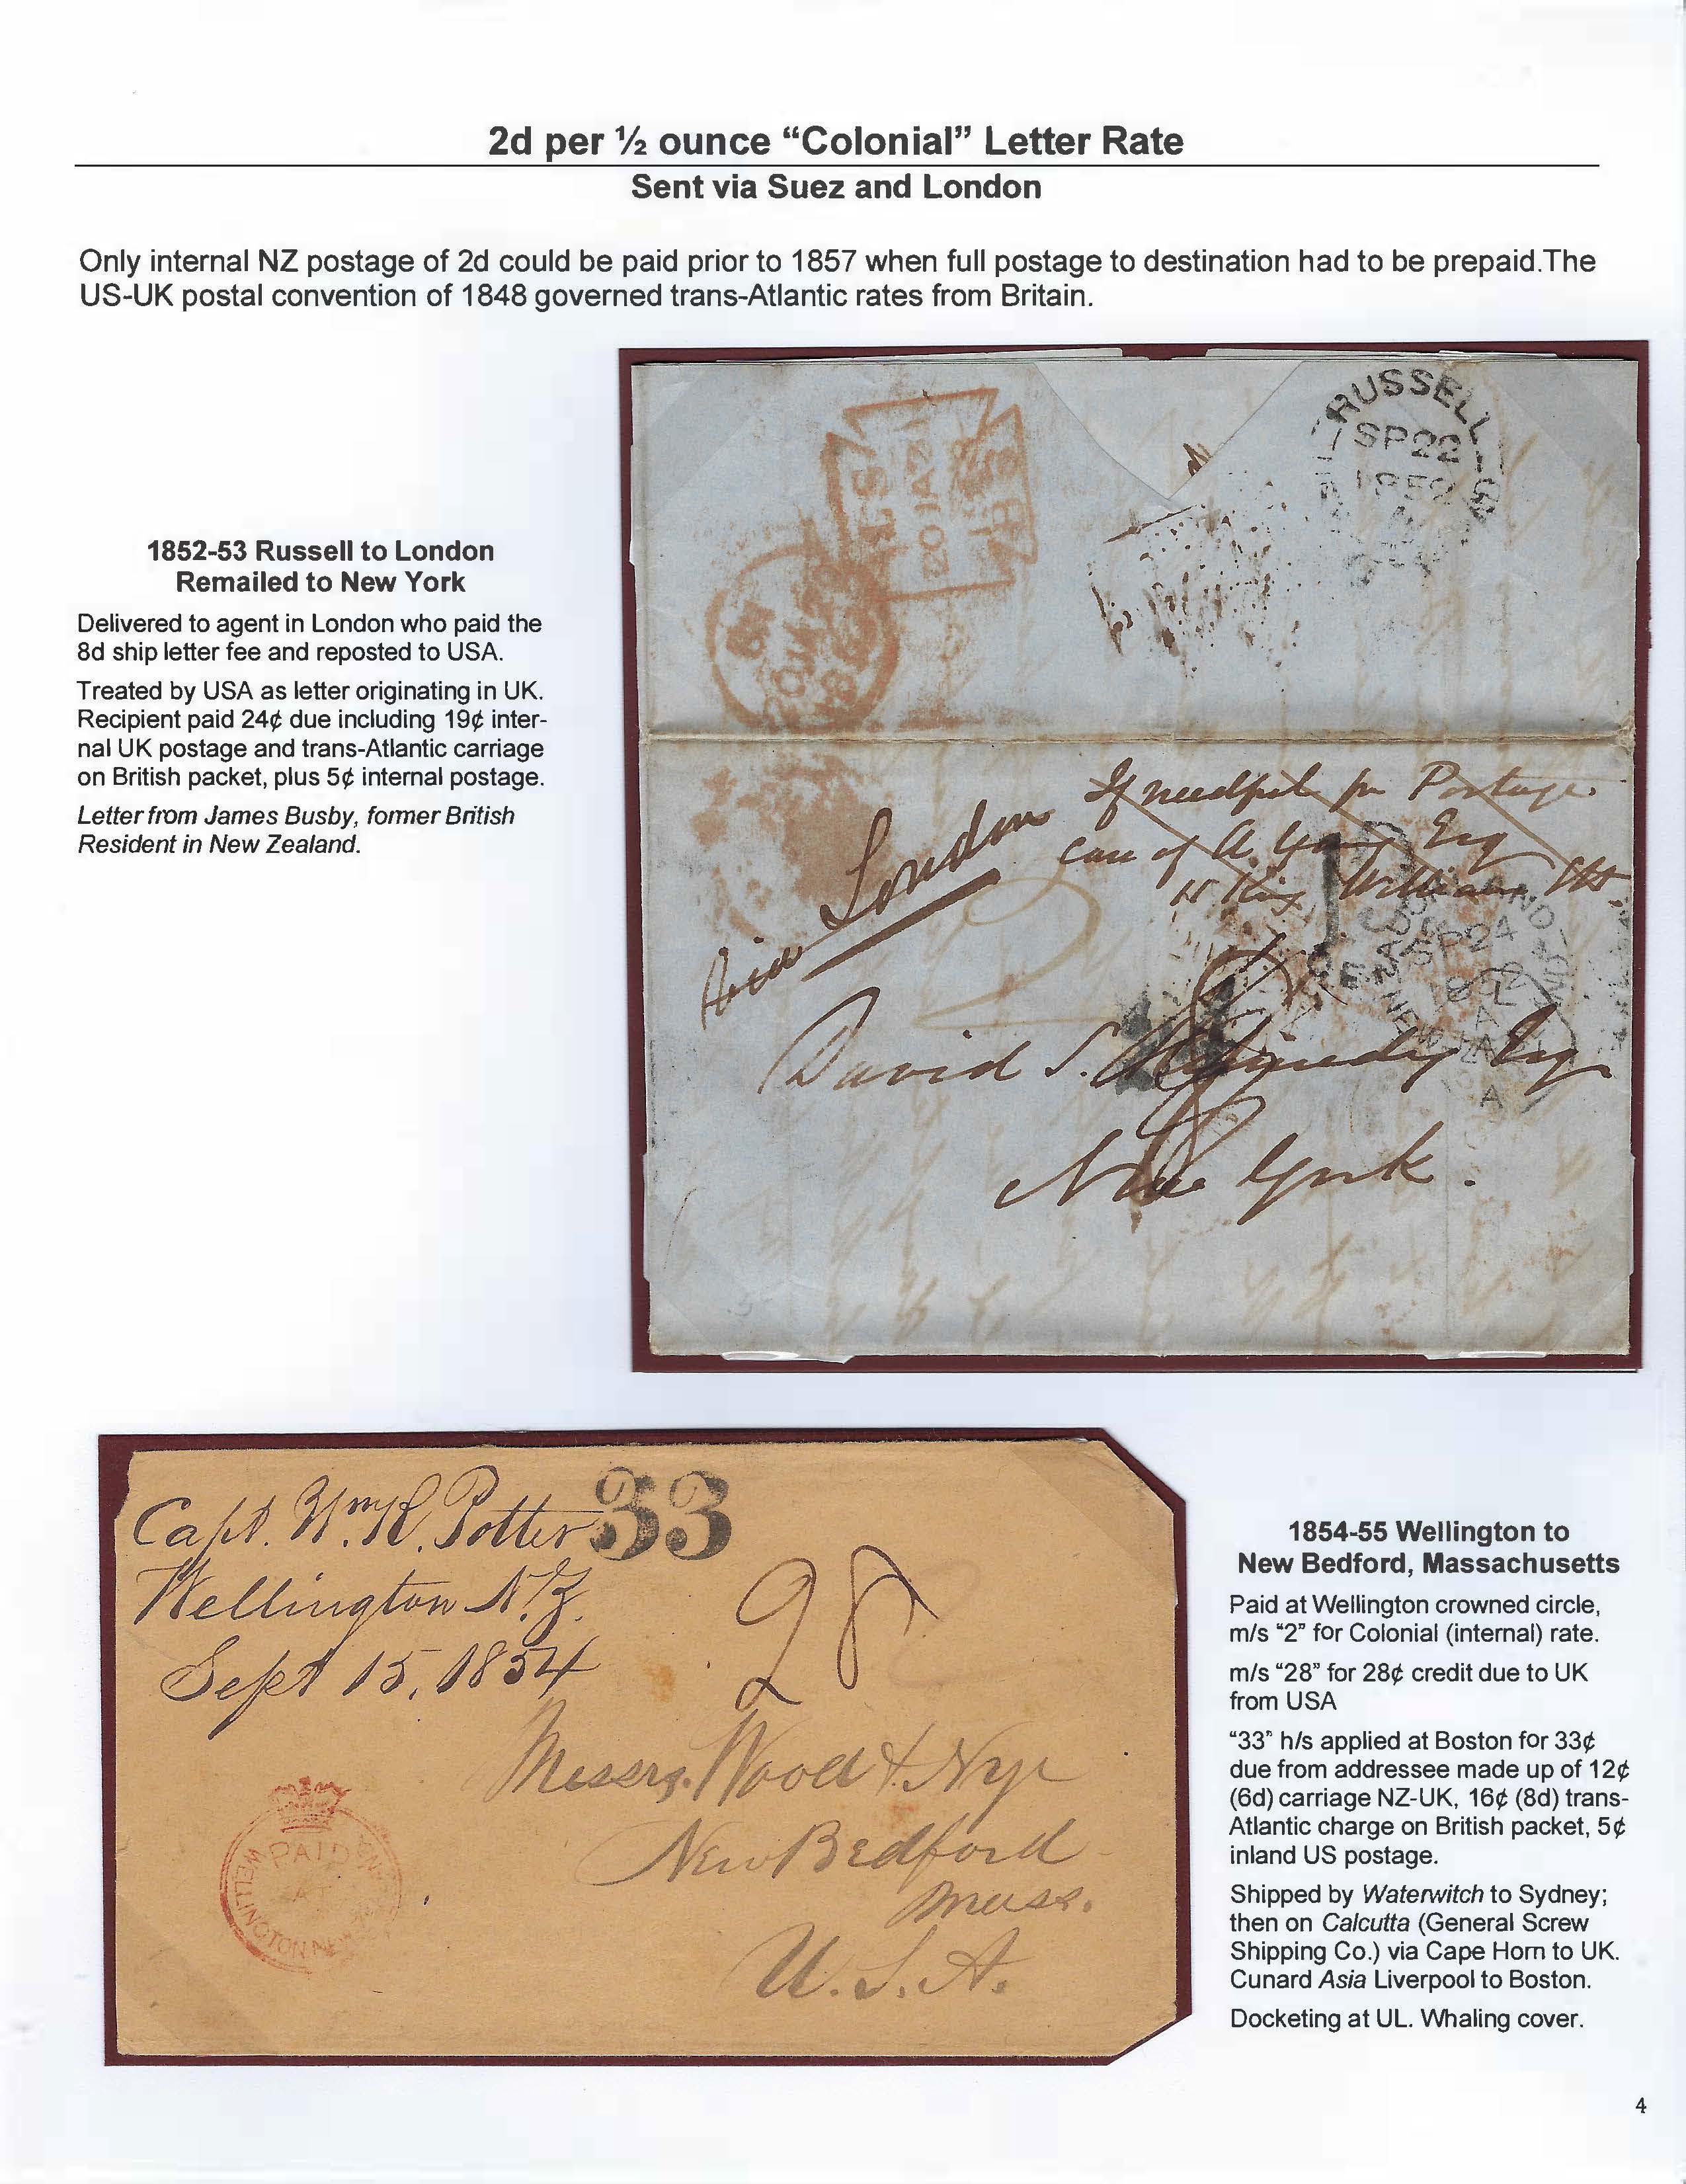 2d per ½ ounce “Colonial” Letter Rate
Sent via Suez and London
Only internal NZ postage of 2d could be paid prior to 1857 when full postage to destination had to be prepaid.The
US-UK postal convention of 1848 governed trans-Atlantic rates from Britain.
1852-53 Russell to London
Remailed to New York
Delivered to agent in London who paid the
8d ship letter fee and reposted to USA.
Treated by USA as letter originating in UK.
Recipient paid 24¢ due including 19¢ inter-
nal UK postage and trans-Atlantic carriage
on British packet, plus 5¢ internal postage.
Letter from James Busby, former British
Resident in New Zealand.
RUSSELL
SP 22
1852
20 JA 20
1853
via London
If needful for Postage
care of A. Esq
King William Stt.
SP 24
1852
A
2
8
David S. Kennedy Esq
New York.
Capt. Wm. R. Potter
33
Wellington N.Z.
Sept 15, 1854
28
Messrs. Wood & Nye
New Bedford
Mass.
U.S.A.
PAID
AT
WELLINGTON NEW
1854-55 Wellington to
New Bedford, Massachusetts
Paid at Wellington crowned circle,
m/s “2” for Colonial (internal) rate.
m/s “28” for 28¢ credit due to UK
from USA
“33” h/s applied at Boston for 33¢
due from addressee made up of 12¢
(6d) carriage NZ-UK, 16¢ (8d) trans-
Atlantic charge on British packet, 5¢
inland US postage.
Shipped by Waterwitch to Sydney;
then on Calcutta (General Screw
Shipping Co.) via Cape Horn to UK.
Cunard Asia Liverpool to Boston.
Docketing at UL. Whaling cover.
4